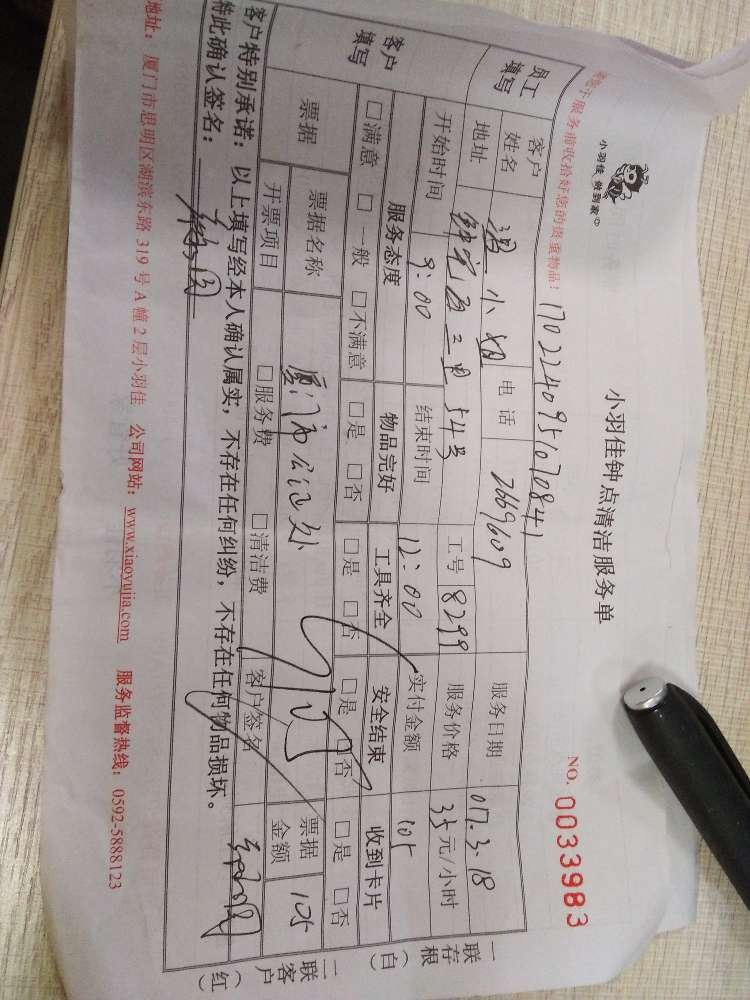 小羽佳 做到家
小羽佳钟点清洁服务单
NO. 0033983
服务前收拾好您的贵重物品！
1702240951070841
员工填写
客户姓名 温小姐 电话 2669609 服务日期 07.3.18
地址 54号 工号 8299 服务价格 35元/小时
开始时间 9:00 结束时间 12:00 实付金额 105
客户填写
服务态度 物品完好 工具齐全 安全结束 收到卡片
□满意 □一般 □不满意 □是 □否 □是 □否 □是 □否 □是 □否
票据 票据名称 厦门市公证处 票据金额 105
开票项目 □服务费 □清洁费 客户签名
客户特别承诺：以上填写经本人确认属实，不存在任何纠纷，不存在任何物品损坏。
特此确认签名：
一联存根（白）
二联客户（红）
地址：厦门市思明区湖滨东路 319 号 A 幢 2 层小羽佳 公司网站：www.xiaoyujia.com 服务监督热线：0592-5888123